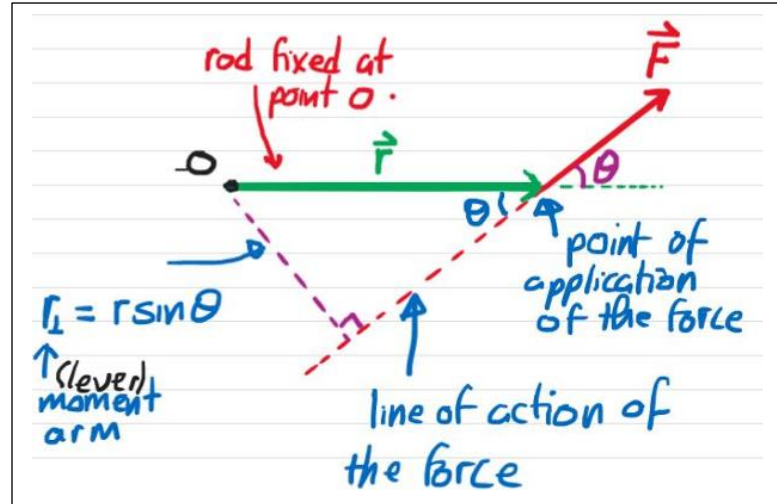 rod fixed at
point O.
F
r
O
θ
θ
point of
application
of the force
r⊥ = r sin θ
(lever)
moment
arm
line of action of
the force